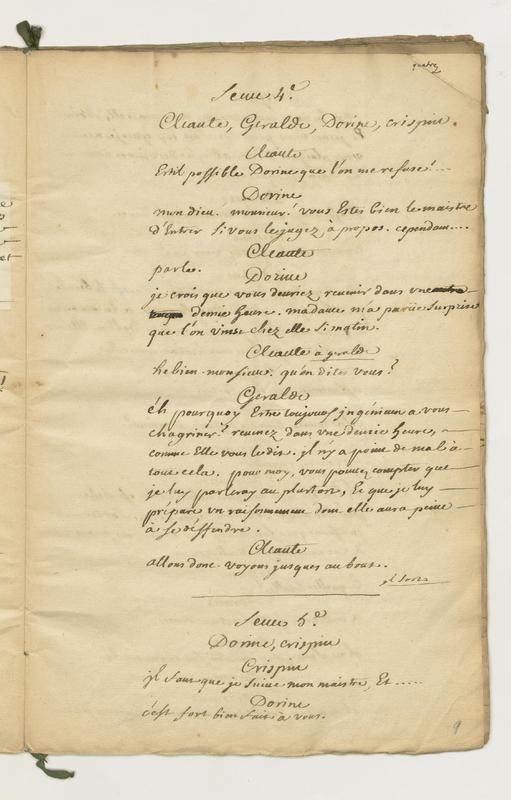 quatre
Scene 4.e
Cleante, Geralde, Dorine, crispin.
Cleante
Est il possible Dorine que l'on me refuse! ...
Dorine
mon dieu. monsieur! vous Estes bien le maistre
d'Entrer si vous le jugez à propos. cependant....
Cleante
parle.
Dorine
je crois que vous devriez revenir dans vne
demie heure. madame m'a parüe surprise
que l'on vinse chez elle si matin.
Cleante à geralde
he bien. monsieur. qu'en dites vous?
Geralde
éh pourquoy Estre toujours jngenieux a vous
chagriner? revenez dans vne demie heure,
comme Elle vous le dit. jl n'y a point de mal à
tout cela. pour moy, vous pouvez compter que
je luy parleray au plustost, Et que je luy
prépare vn raisonnement dont elle aura peine
à se deffendre.
Cleante
allons donc. voyons jusques au bout.
jl sort
Scene 5.e
Dorine, crispin
Crispin
jl faut que je suive mon maistre, Et .....
Dorine
c'est fort bien fait à vous.
9